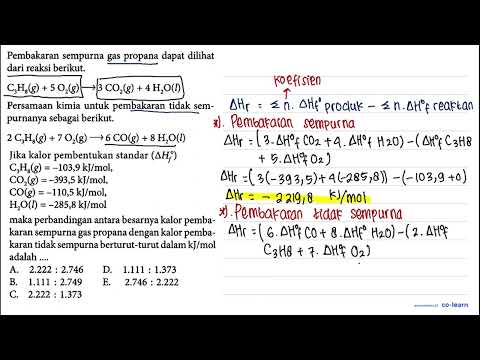 Pembakaran sempurna gas propana dapat dilihat
dari reaksi berikut.
C₃H₈(g) + 5 O₂(g) ⟶ 3 CO₂(g) + 4 H₂O(l)
Persamaan kimia untuk pembakaran tidak sem-
purnanya sebagai berikut.
2 C₃H₈(g) + 7 O₂(g) ⟶ 6 CO(g) + 8 H₂O(l)
Jika kalor pembentukan standar (ΔH°f)
C₃H₈(g) = –103,9 kJ/mol,
CO₂(g) = –393,5 kJ/mol,
CO(g) = –110,5 kJ/mol,
H₂O(l) = –285,8 kJ/mol
maka perbandingan antara besarnya kalor pemba-
karan sempurna gas propana dengan kalor pemba-
karan tidak sempurna berturut-turut dalam kJ/mol
adalah ....
A. 2.222 : 2.746
B. 1.111 : 2.749
C. 2.222 : 1.373
D. 1.111 : 1.373
E. 2.746 : 2.222
koefisien
ΔHr = Σ n. ΔHf° produk – Σ n. ΔH°f reaktan
*). Pembakaran sempurna
ΔHr = (3. ΔH°f CO₂ + 4. ΔH°f H₂O) – (ΔH°f C₃H₈
+ 5. ΔH°f O₂)
ΔHr = (3(-393,5) + 4(-285,8)) – (-103,9 + 0)
ΔHr = – 2219,8 kJ/mol
*). Pembakaran tidak sempurna
ΔHr = (6. ΔH°f CO + 8. ΔHf° H₂O) – (2. ΔH°f
C₃H₈ + 7. ΔH°f O₂)
co-learn